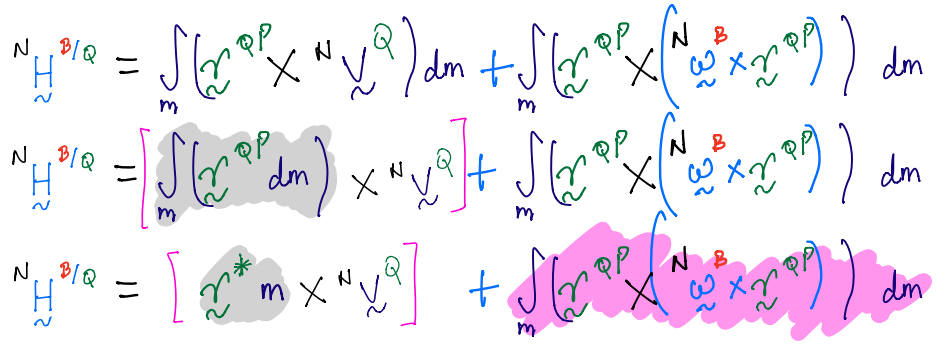 ᴺH̰ᴮᐟQ = ∫ₘ (r̰^{QP} × ᴺv̰^{Q}) dm + ∫ₘ (r̰^{QP} × (ᴺω̰^{B} × r̰^{QP})) dm
ᴺH̰ᴮᐟQ = [∫ₘ (r̰^{QP} dm) × ᴺv̰^{Q}] + ∫ₘ (r̰^{QP} × (ᴺω̰^{B} × r̰^{QP})) dm
ᴺH̰ᴮᐟQ = [r̰^{*} m × ᴺv̰^{Q}] + ∫ₘ (r̰^{QP} × (ᴺω̰^{B} × r̰^{QP})) dm